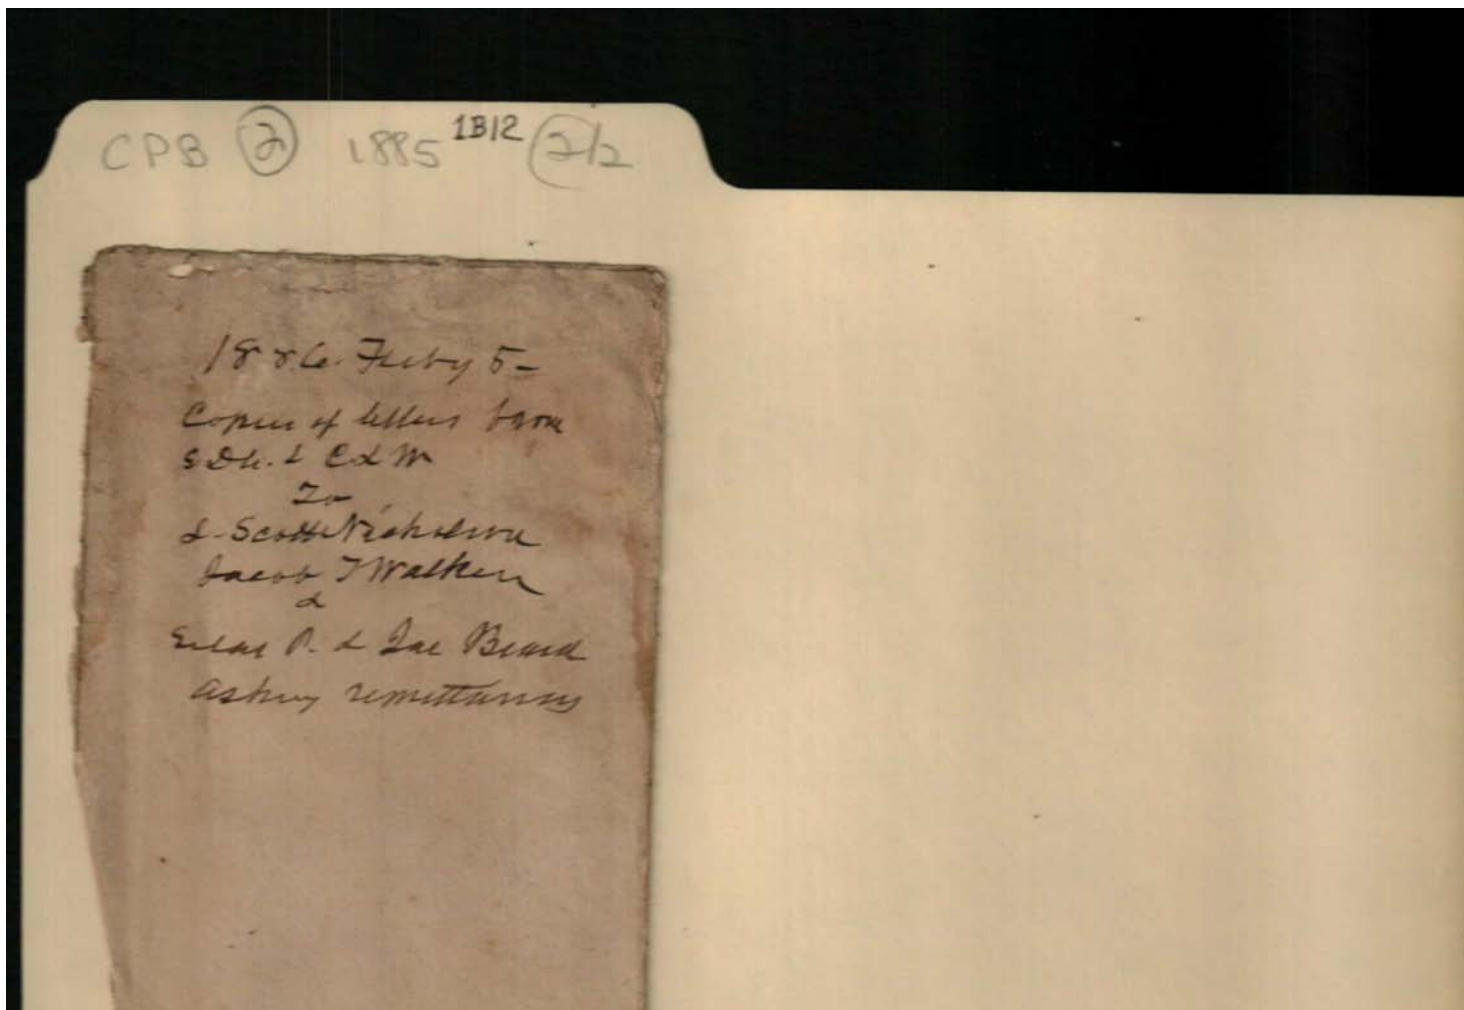 CPB 2 1885 1B12 2/2
1886. Feby 5-
Copies of letters from
& C & M
To
L. Scott Nicholson
Jacob T Walker
&
P. & Beard
Asking remittances